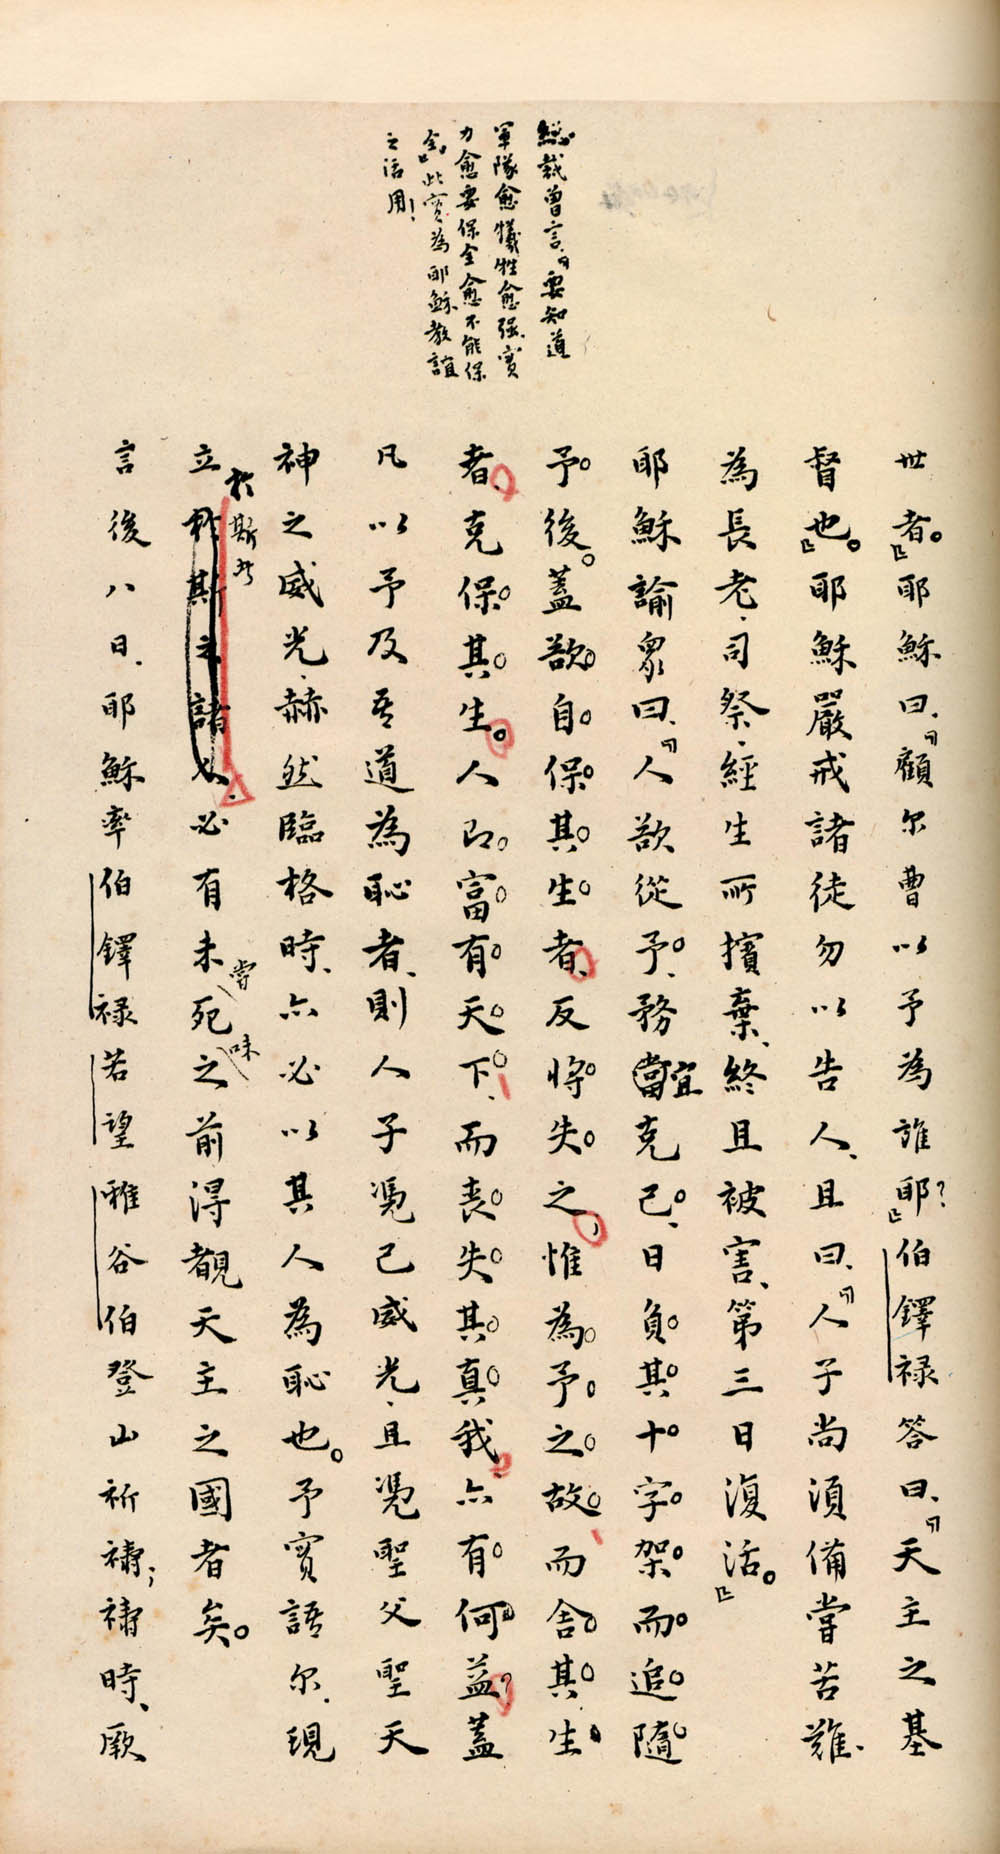 總裁曾言、「要知道
軍隊愈犧牲愈强、實
力愈要保全愈不能保
全。」此實為耶穌教誼
之活用！
世者。」耶穌曰、「顧尔曹以予為誰耶？」伯鐸祿答曰、「天主之基
督也。」耶穌嚴戒諸徒勿以告人、且曰、「人子尚須備嘗苦難、
為長老、司祭、經生所擯棄、終且被害、第三日復活。」
耶穌諭眾曰、「人欲從予、務宜克己、日負其十字架、而追隨
予後。蓋欲自保其生者、反將失之、惟為予之故、而舍其生
者、克保其生。人即富有天下、而喪失其真我、亦有何益？蓋
凡以予及吾道為恥者、則人子憑己威光、且憑聖父聖天
神之威光、赫然臨格時、亦必以其人為恥也。予實語尔、現
立於斯者、必有未嘗死味之前得覩天主之國者矣。
言後八日、耶穌率伯鐸祿若望雅谷伯登山祈禱；禱時、厥